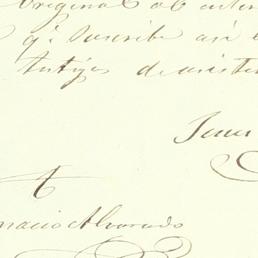 Original
q.e suscribe asi
testigos de asisten
Juan
nacio Alvarado